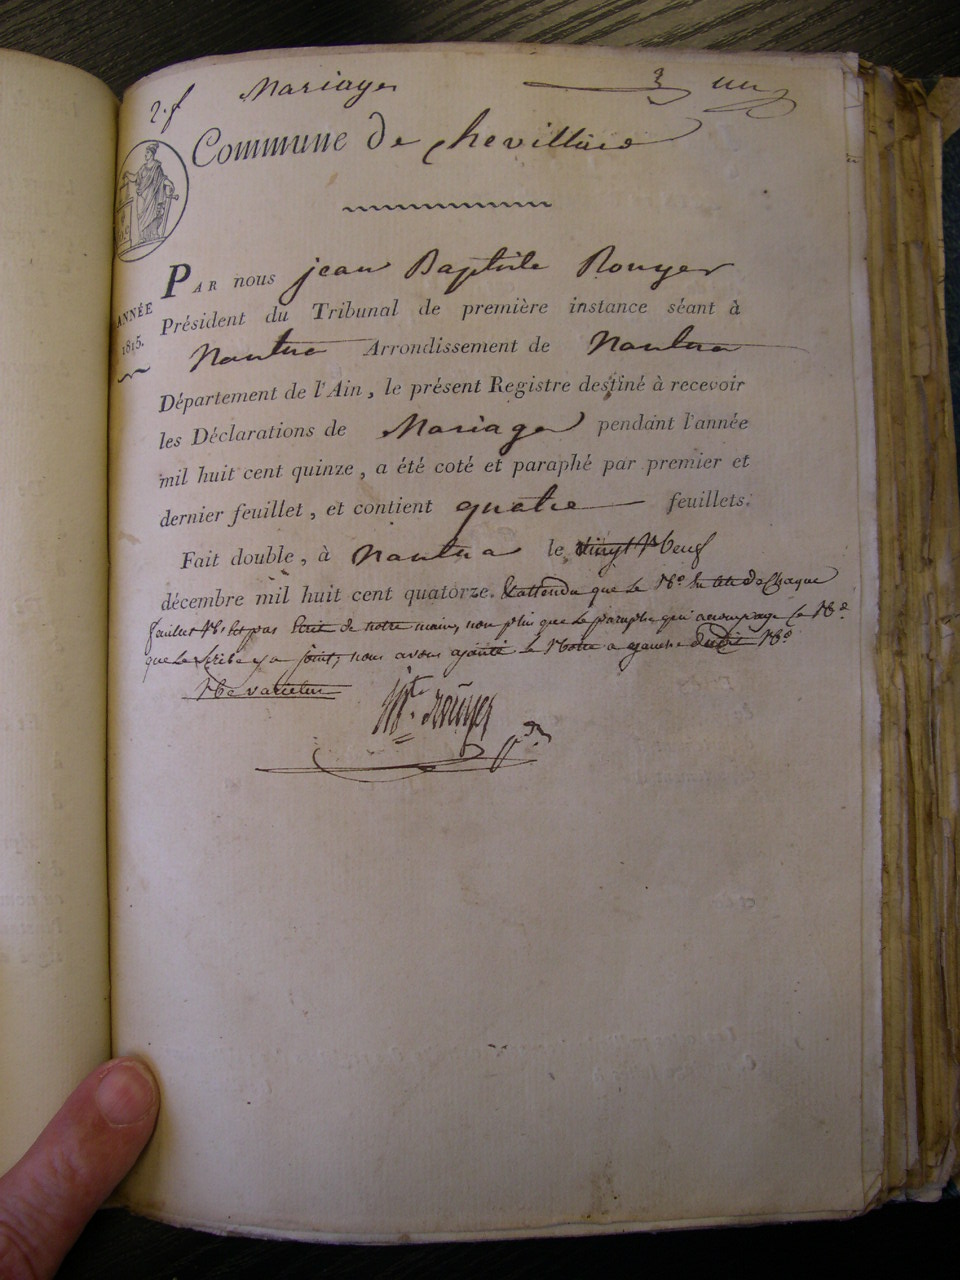 2.f Mariages un
Commune de Chevillard
PAR nous jean Baptiste Rouyer
ANNÉE
1815.
Président du Tribunal de première instance séant à
Nantua Arrondissement de Nantua
Département de l'Ain, le présent Registre destiné à recevoir
les Déclarations de Mariages pendant l'année
mil huit cent quinze, a été coté et paraphé par premier et
dernier feuillet, et contient quatre feuillets.
Fait double, à Nantua le vingt Neuf
décembre mil huit cent quatorze. Et attendu que le N.° en tête de Chaque
feuillet N'est pas Ecrit de notre main, non plus que le paraphe qui accompagne ce N.°
que le scribe y a joint, nous avons ajouté le Notre a gauche dudit N.°
Ne varietur
Rouyer